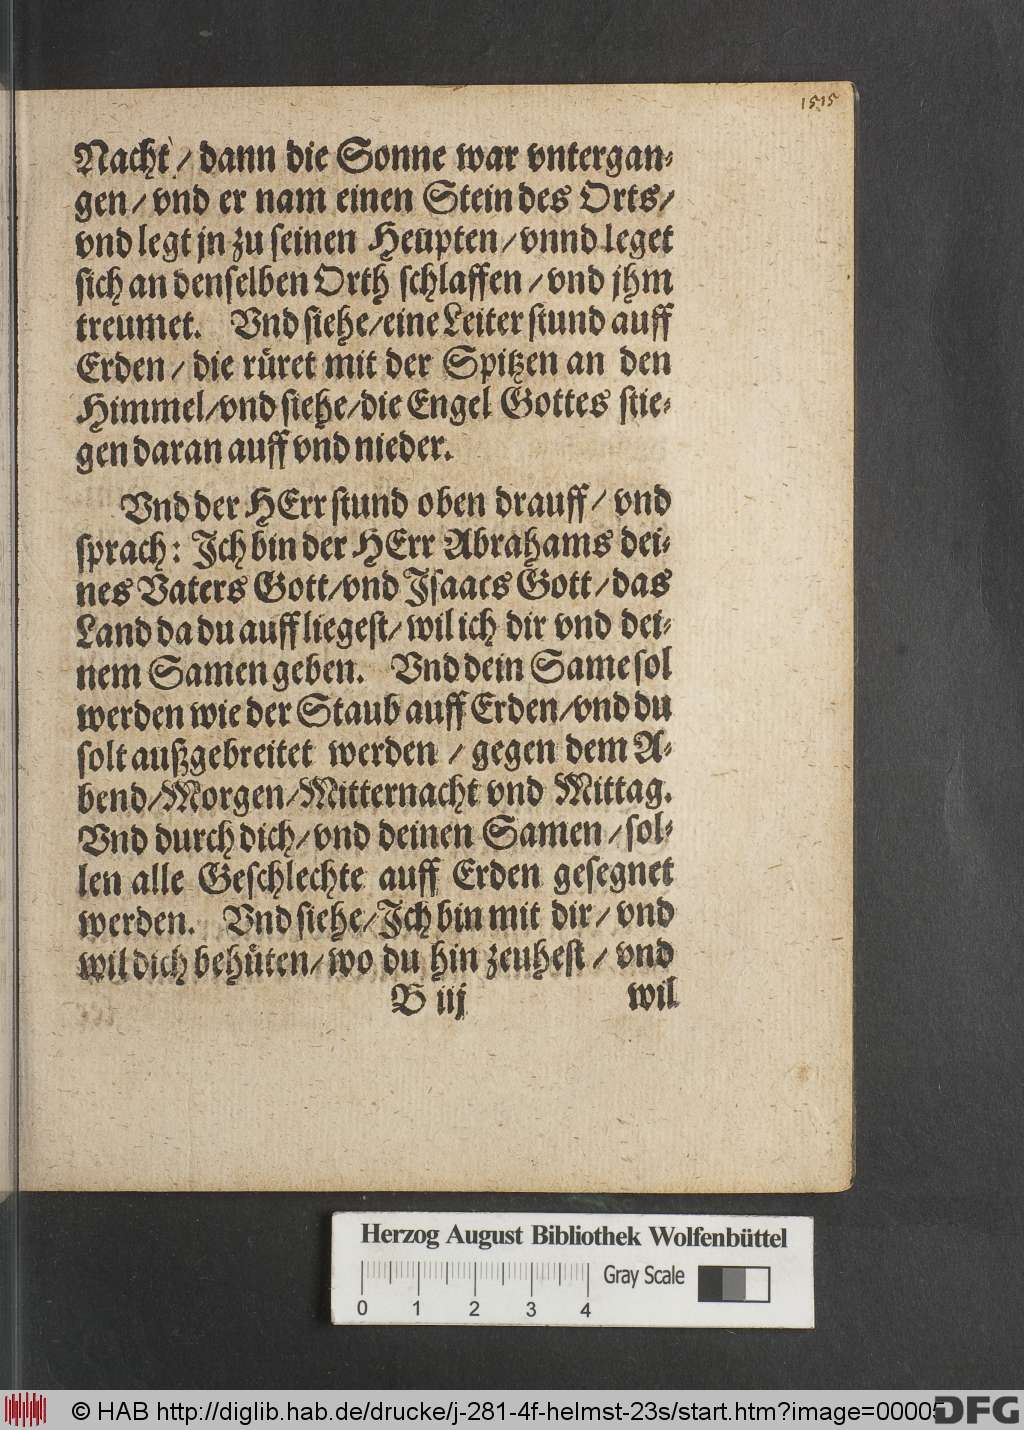 1515
Nacht / dann die Sonne war vntergan-
gen / vnd er nam einen Stein des Orts /
vnd legt jn zu seinen Heupten / vnnd leget
sich an denselben Orth schlaffen / vnd jhm
treumet. Vnd siehe / eine Leiter stund auff
Erden / die rüret mit der Spitzen an den
Himmel / vnd siehe / die Engel Gottes stie-
gen daran auff vnd nieder.
Vnd der HErr stund oben drauff / vnd
sprach: Ich bin der HErr Abrahams dei-
nes Vaters Gott / vnd Isaacs Gott / das
Land da du auff liegest / wil ich dir vnd dei-
nem Samen geben. Vnd dein Same sol
werden wie der Staub auff Erden / vnd du
solt außgebreitet werden / gegen dem A-
bend / Morgen / Mitternacht vnd Mittag.
Vnd durch dich / vnd deinen Samen / sol-
len alle Geschlechte auff Erden gesegnet
werden. Vnd siehe / Ich bin mit dir / vnd
wil dich behüten / wo du hin zeuhest / vnd
B iij wil
Herzog August Bibliothek Wolfenbüttel
Gray Scale
0 1 2 3 4
© HAB http://diglib.hab.de/drucke/j-281-4f-helmst-23s/start.htm?image=00005
DFG